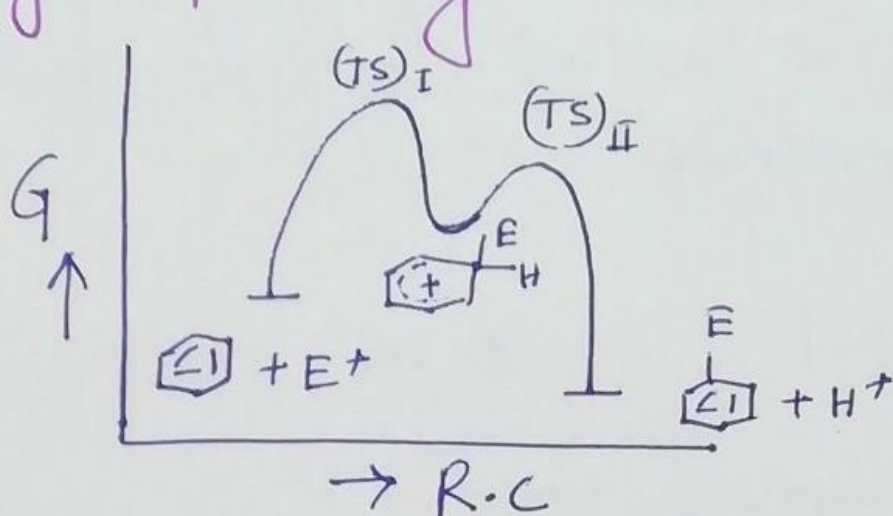 (TS) I
(TS) II
G
↑
E
H
+
+ E +
E
+ H +
→ R.C